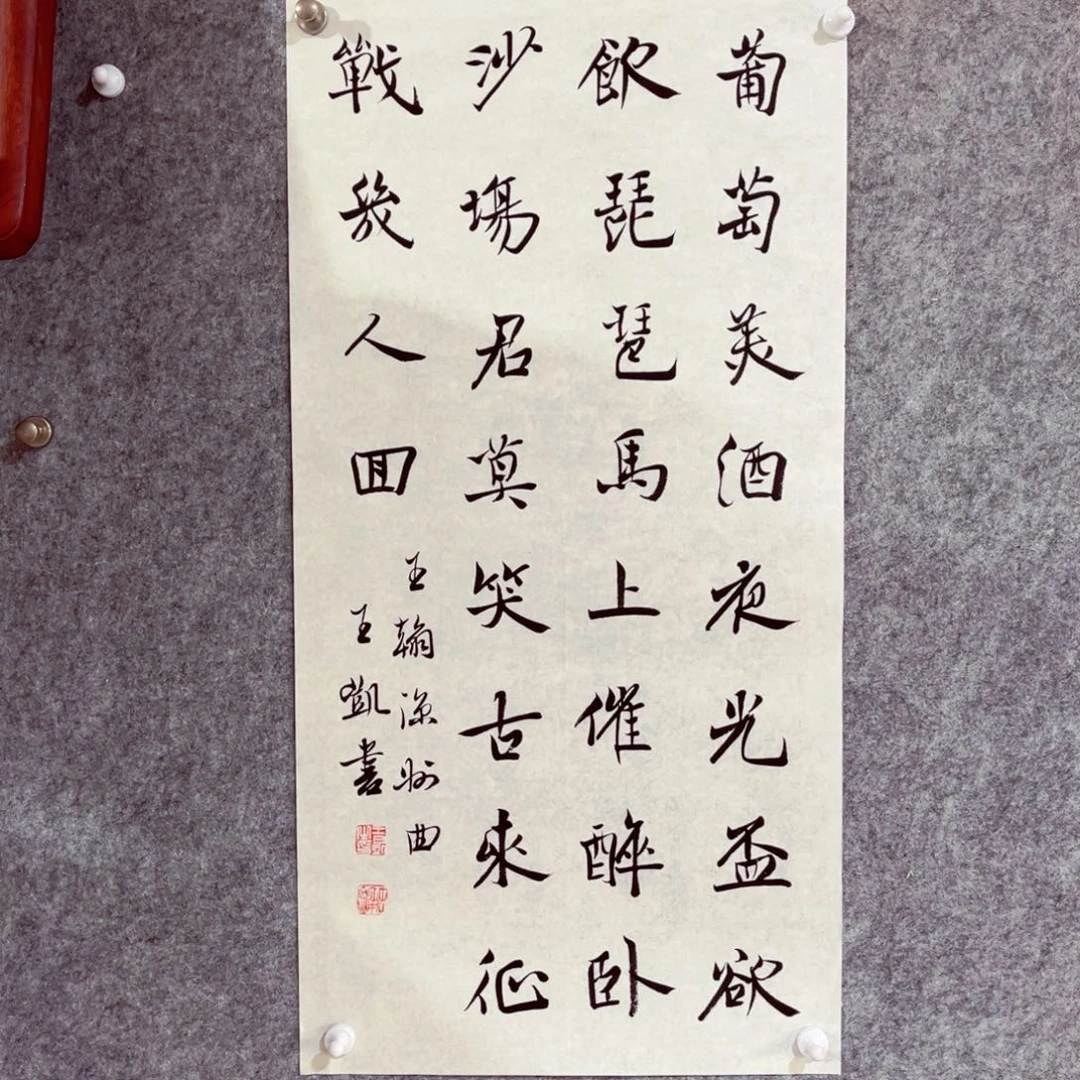 葡萄美酒夜光盃欲
飲琵琶馬上催醉卧
沙場君莫笑古來征
戰幾人回
王翰涼州曲
王凱書